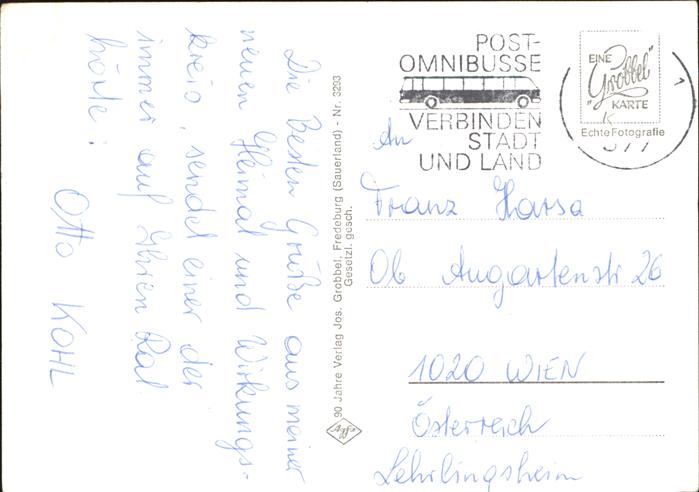 Die Besten Grüße aus meiner
neuen Heimat und Wirkungs-
kreis, sendet einer der
immer auf Ihren Rat
hörte!
Otto KOHL
90 Jahre Verlag Jos. Grobbel, Fredeburg (Sauerland) - Nr. 3293
Gesetzl. gesch.
Agfa
POST-
OMNIBUSSE
VERBINDEN
STADT
UND LAND
EINE
"Grobbel"
KARTE
K
Echte Fotografie
1
An
Franz Harsa
Ob. Augartenstr 26
1020 WIEN
Österreich
Lehrlingsheim